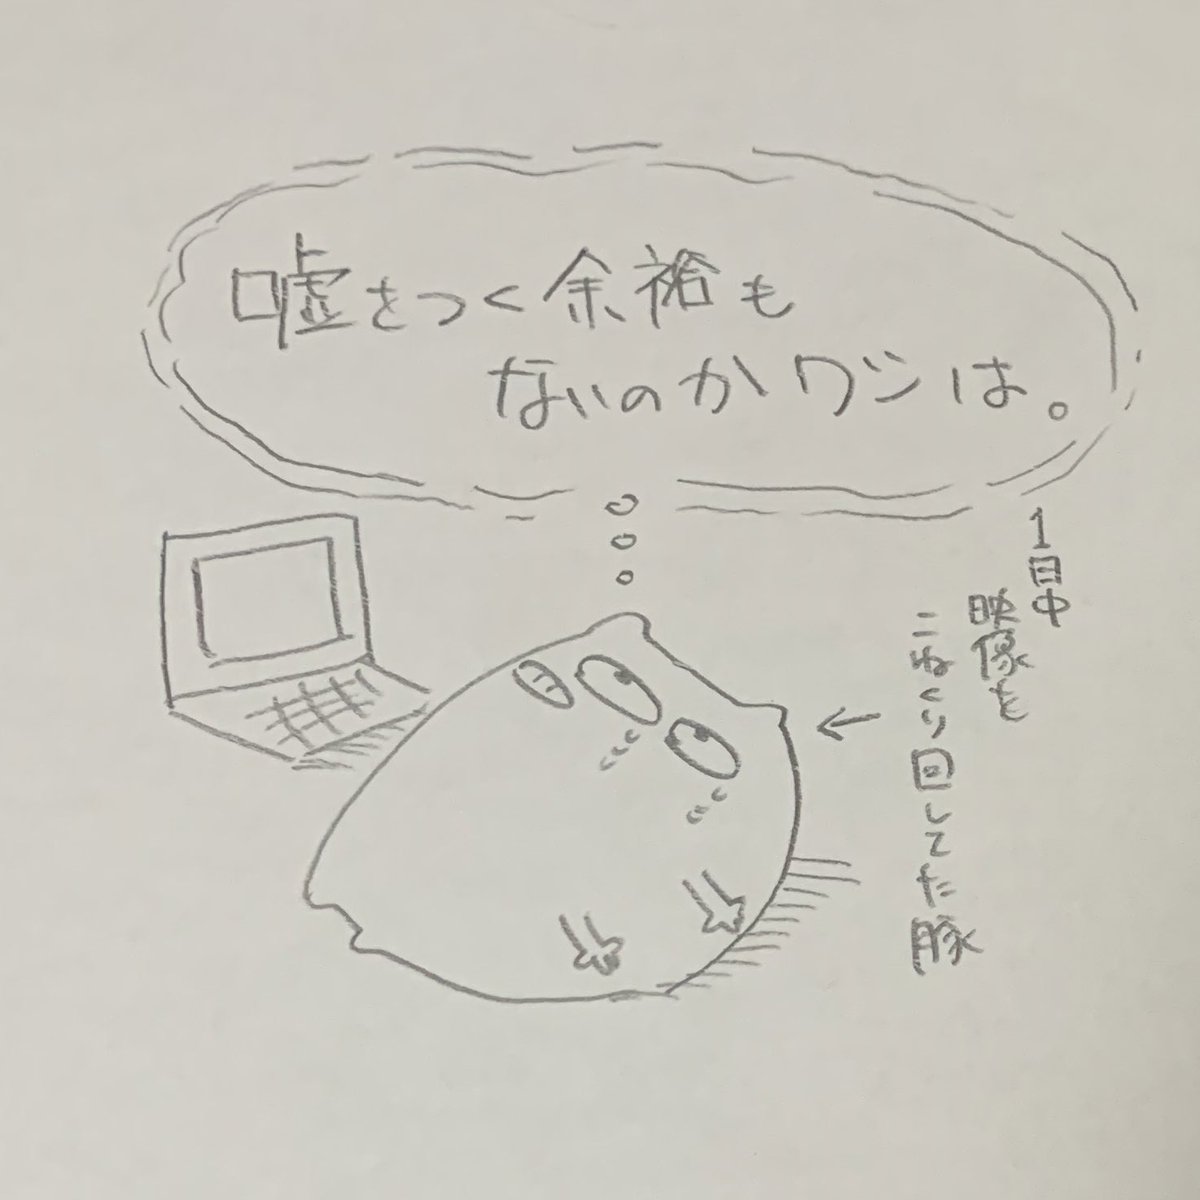 嘘をつく余裕も
ないのかワシは。
1日中
映像を
こねくり回してた豚